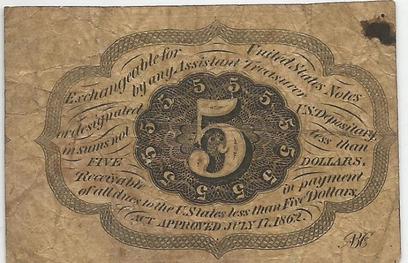 Exchangeable for United States Notes
by any Assistant Treasurer
or designated U.S. Depositary
in sums not less than
FIVE DOLLARS.
Receivable in payment
of all dues to the U. States less than Five Dollars.
ACT APPROVED JULY 17, 1862.
5
5 5 5 5 5 5 5 5 5 5